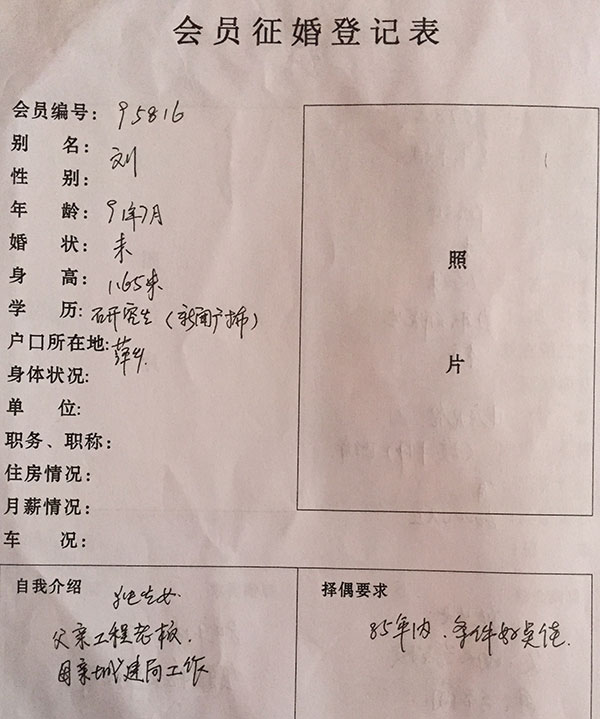 会员征婚登记表
会员编号：95816
别 名：刘
性 别：
年 龄：91年7月
婚 状：未
身 高：1.65米
学 历：研究生（新闻广播）
户口所在地：萍乡
身体状况：
单 位：
职务、职称：
住房情况：
月薪情况：
车 况：
照
片
自我介绍 独生女
父亲工程老板
母亲城建局工作
择偶要求
85年内．条件好点佳．